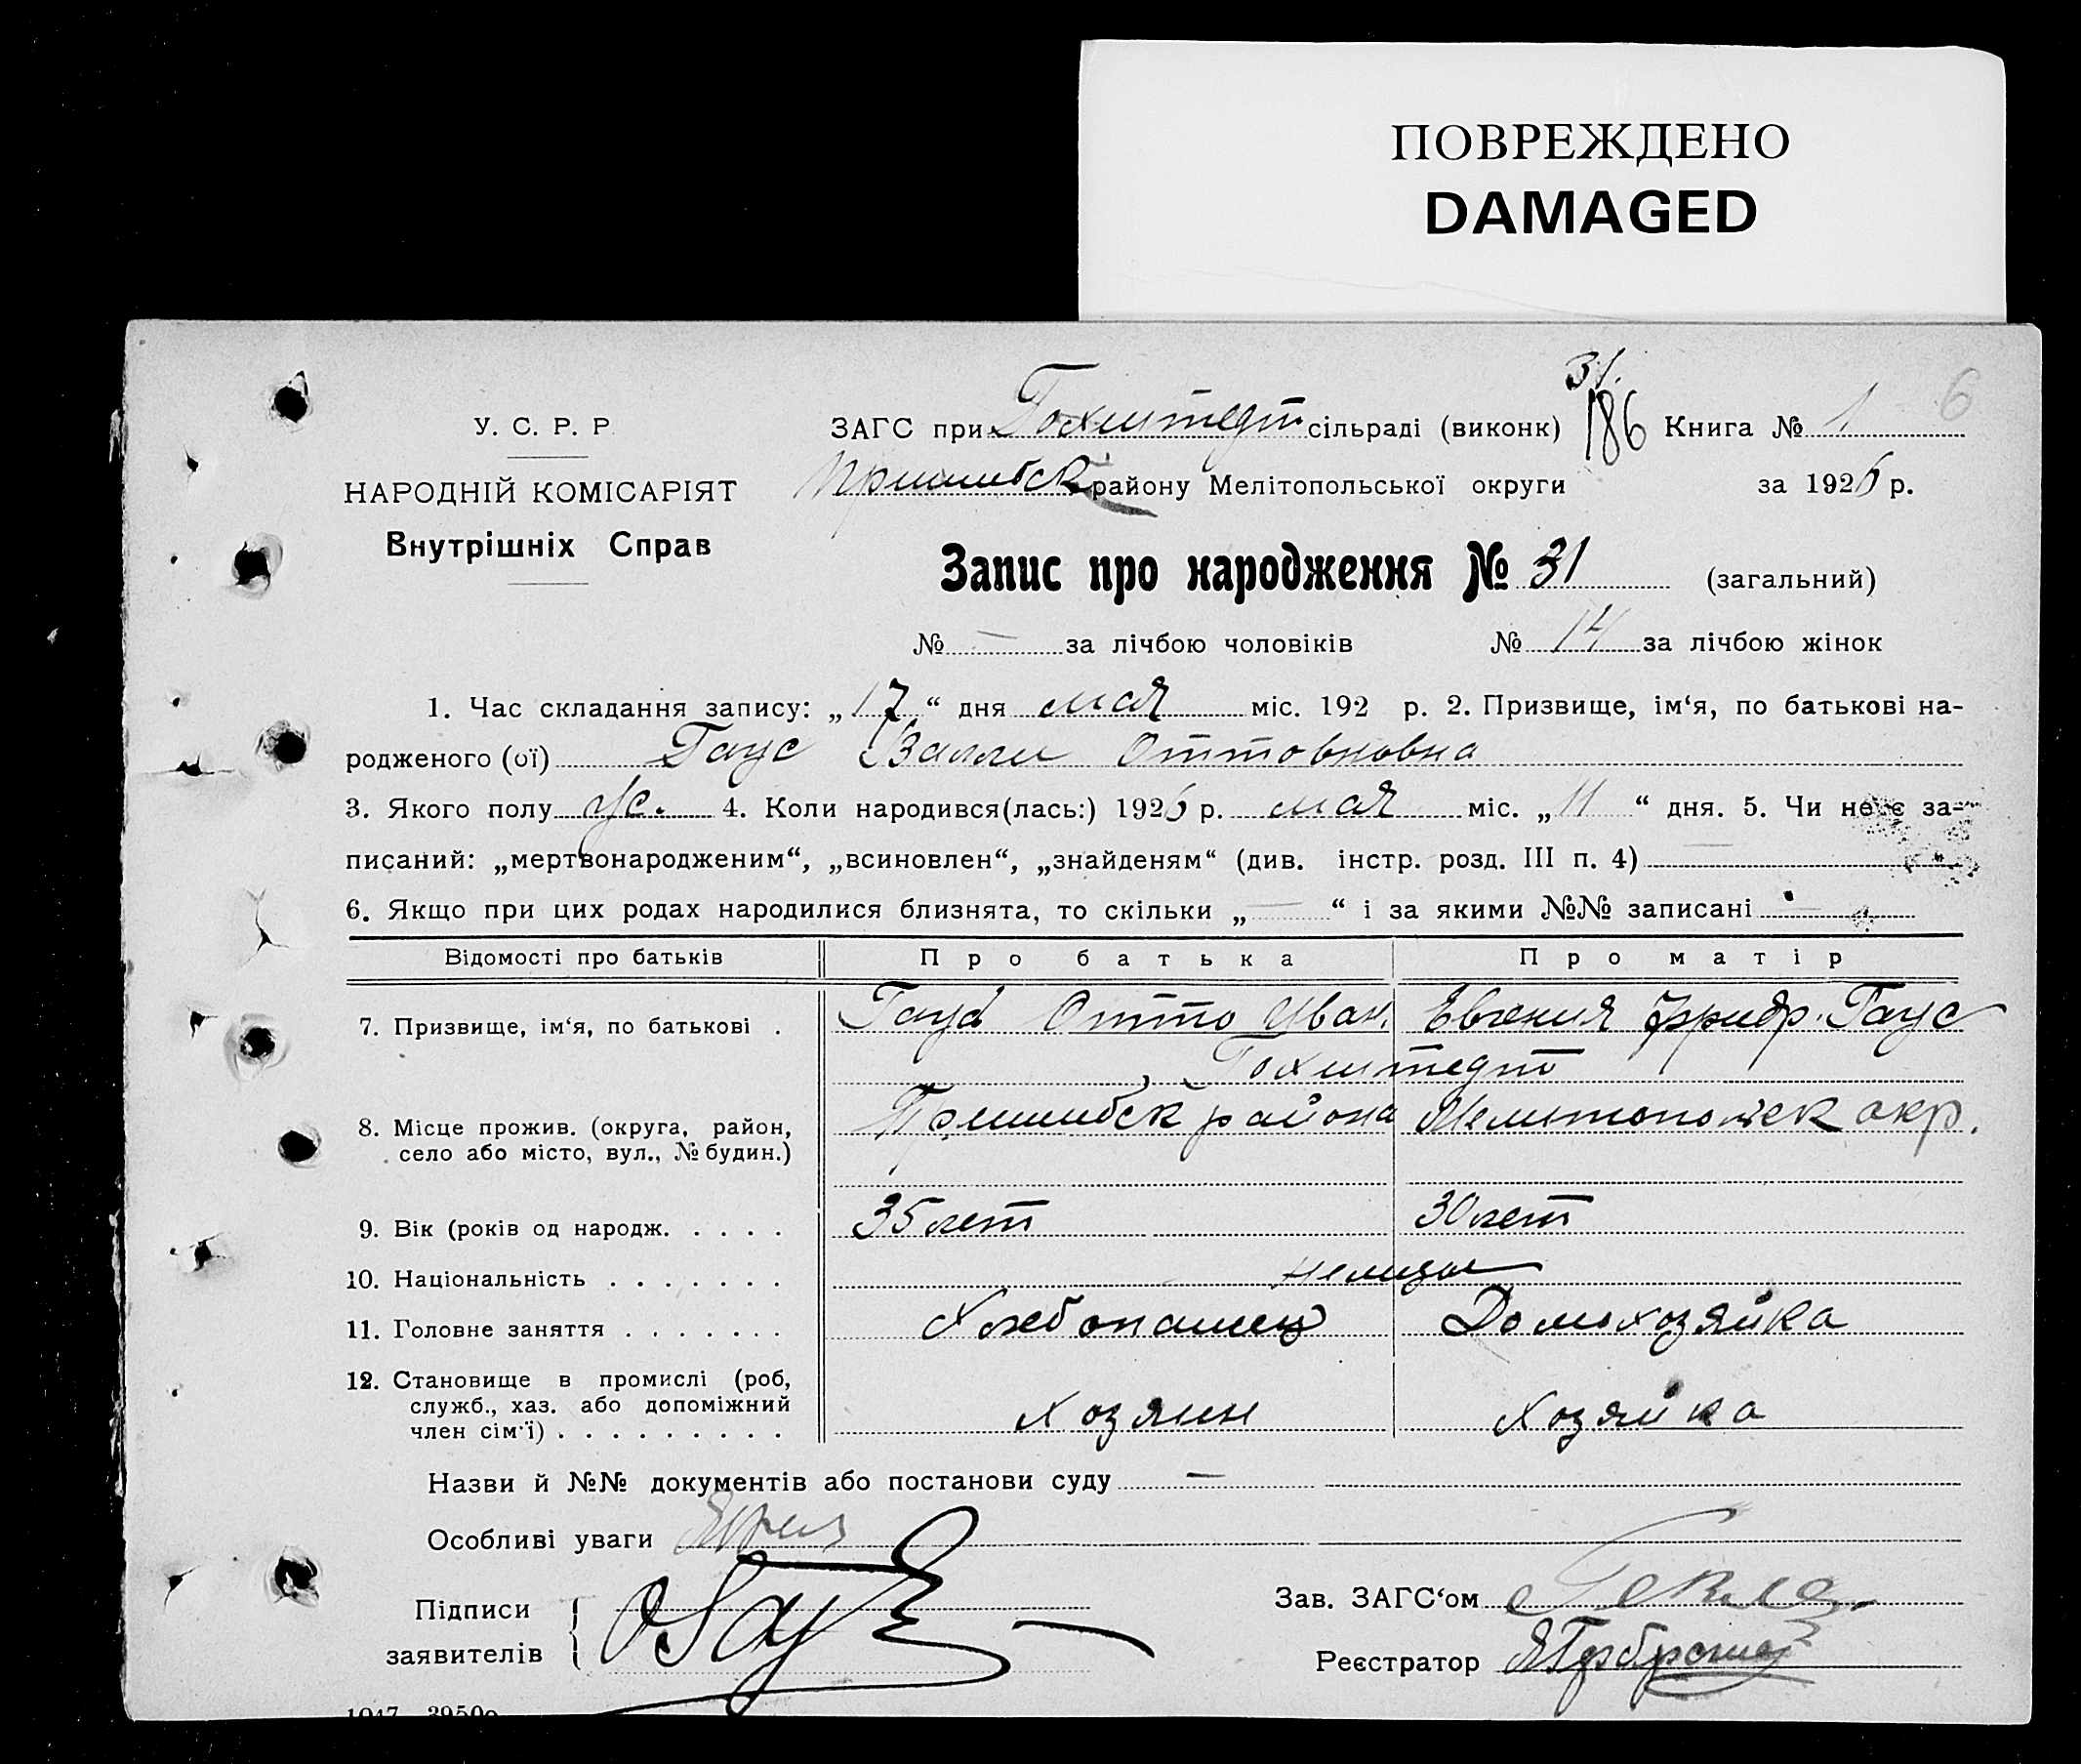 ПОВРЕЖДЕНО
DAMAGED
31.
У. С. Р. Р
ЗАГС при Гохштедт сільраді (виконк) 186 Книга № 1 6
НАРОДНІЙ КОМІСАРІЯТ
Пришибск району Мелітопольської округи за 1926 р.
Внутрішніх Справ
Запис про народження № 31 (загальний)
№ — за лічбою чоловіків № 14 за лічбою жінок
1. Час складання запису: „17“ дня мая міс. 192 р. 2. Призвище, ім‘я, по батькові на-
родженого (ої) Гаус Валли Оттовновна
3. Якого полу ж. 4. Коли народився(лась:) 1926 р. мая міс. „11“ дня. 5. Чи не є за-
писаний: „мертвонародженим“, „всиновлен“, „знайденям“ (див. інстр. розд. III п. 4) —
6. Якщо при цих родах народилися близнята, то скільки „—“ і за якими №№ записані —
Відомості про батьків Про батька Про матір
7. Призвище, ім‘я, по батькові . Гаус Отто Иван. Евгения Фридр. Гаус
Гохштедт
8. Місце прожив. (округа, район, Пришибск района Мелитопольск окр.
село або місто, вул., № будин.)
9. Вік (років од народж. . . . . 35 лет 30 лет
10. Національність . . . . . . . немцы
11. Головне заняття . . . . . . . Хлебопашец Домохозяйка
12. Становище в промислі (роб,
служб., хаз. або допоміжний Хозяин Хозяйка
член сім‘ї) . . . . . . . . .
Назви й №№ документів або постанови суду —
Особливі уваги
Підписи
заявителів
Зав. ЗАГС‘ом
Реєстратор